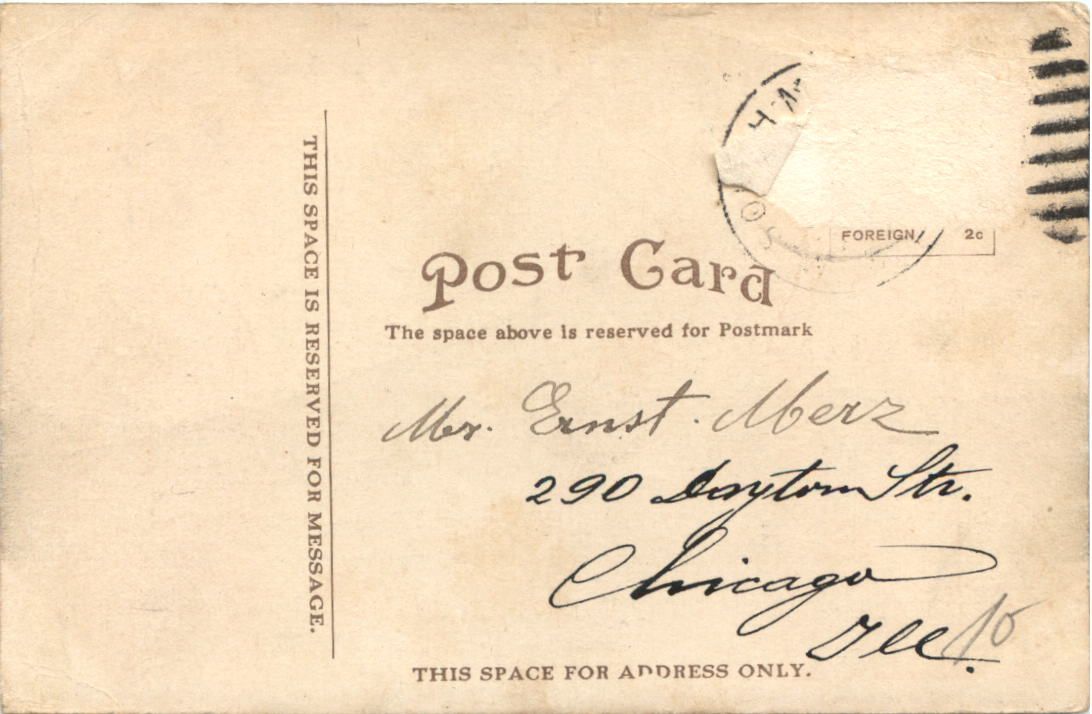 THIS SPACE IS RESERVED FOR MESSAGE.
FOREIGN 2c
Post Card
The space above is reserved for Postmark
Mr. Ernst. Merz
290 Dayton Str.
Chicago
Ill.
10
THIS SPACE FOR ADDRESS ONLY.